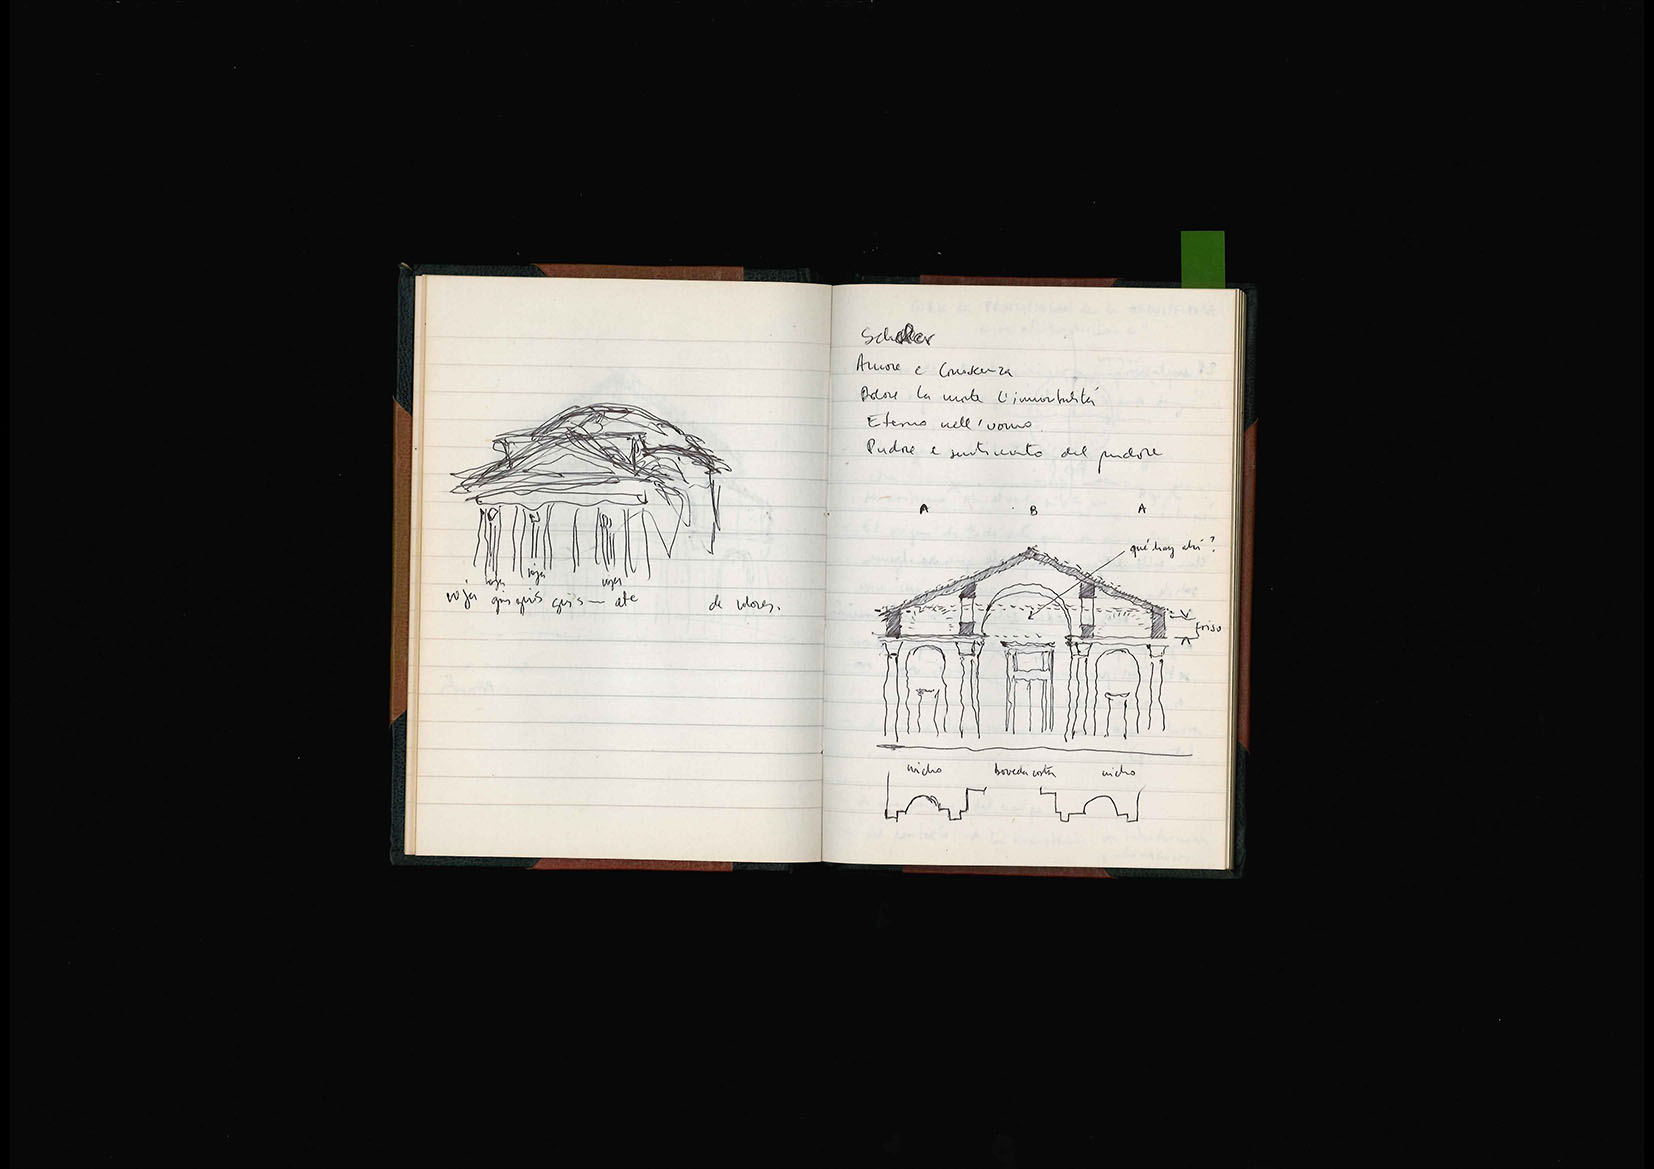 roja roja roja
roja gris gris gris — ate de colores.
Scheler
Amore e Conoscenza
Dolore la morte l'immortalitá
Eterno nell'uomo.
Pudore e sentimento del pudore
A B A
qué hay ahí?
friso
nicho boveda nicho